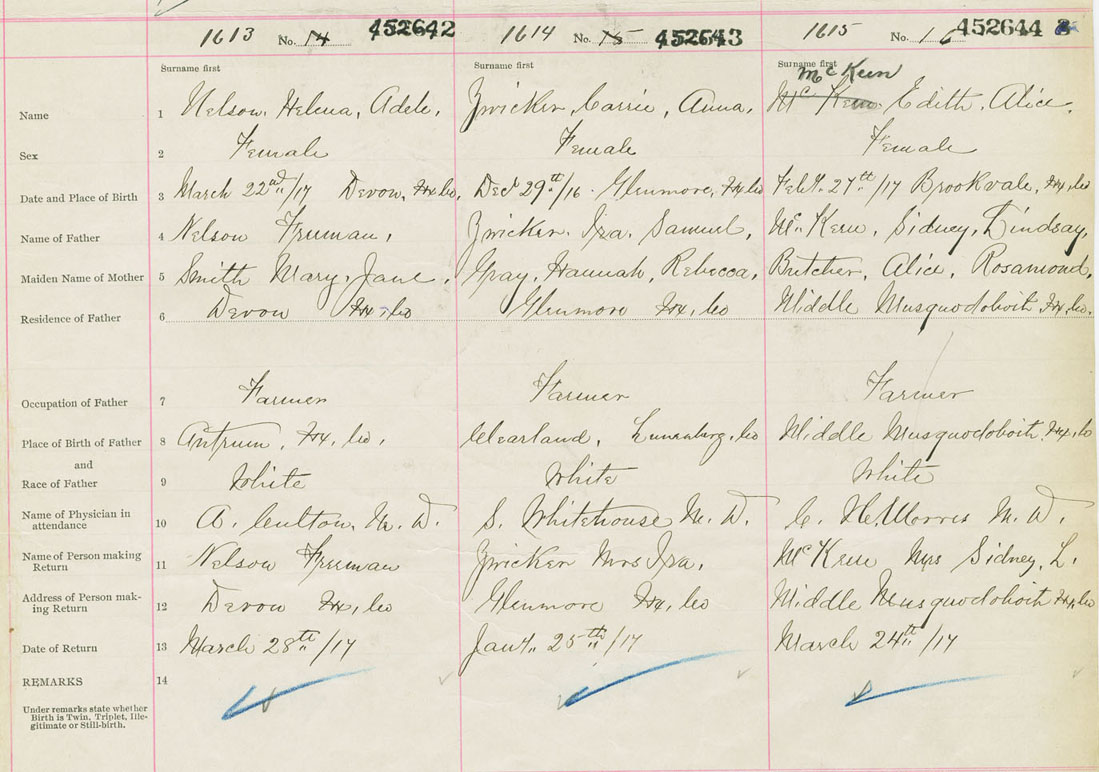 1613 No. 14 452642 1614 No. 15 452643 1615 No. 16 452644
Surname first Surname first Surname first
McKeen
Name 1 Nelson, Helena, Adele, Zwicker, Carrie, Anna, McKeen Edith, Alice,
Sex 2 Female Female Female
Date and Place of Birth 3 March 22nd/17 Devon, Hx, Co, Decr 29th/16 Glenmore, Hx, Co Feby. 27th/17 Brookvale, Hx, Co
Name of Father 4 Nelson Freeman, Zwicker, Ira, Samuel, McKeen, Sidney, Lindsay,
Maiden Name of Mother 5 Smith Mary, Jane, Gray, Hannah, Rebecca, Butcher, Alice, Rosamond,
Residence of Father 6 Devon Hx, Co Glenmore Hx, Co Middle Musquodoboit Hx, Co.
Occupation of Father 7 Farmer Farmer Farmer
Place of Birth of Father 8 Antrum, Hx, Co, Clearland, Lunenburg, Co Middle Musquodoboit, Hx, Co
and
Race of Father 9 White White White
Name of Physician in
attendance 10 A. Culton, M. D. S. Whitehouse M. D. C. H. Morris M. D.
Name of Person making
Return 11 Nelson Freeman Zwicker Mrs Ira, McKeen Mrs Sidney, L.
Address of Person mak-
ing Return 12 Devon Hx, Co Glenmore Hx, Co Middle Musquodoboit Hx, Co
Date of Return 13 March 28th/17 Jany. 25th/17 March 24th/17
REMARKS 14
Under remarks state whether
Birth is Twin, Triplet, Ille-
gitimate or Still-birth.